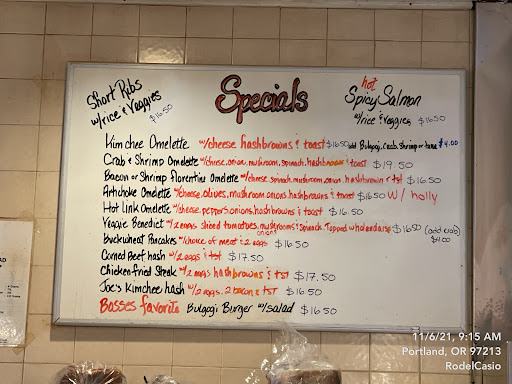 Specials
Short Ribs
w/rice & Veggies
$16.50
hot
Spicy Salmon
w/rice & Veggies $16.50
Kimchee Omelette w/cheese hashbrowns & toast $16.50 add Bulgogi, Crab, Shrimp or tuna $4.00
Crab & Shrimp Omelette w/cheese, onion, mushroom, spinach, hashbrowns & toast $19.50
Bacon or Shrimp Florentine Omelette w/cheese, spinach, mushroom, onion, hashbrown & tst $16.50
Artichoke Omelette w/cheese, olives, mushroom, onions, hashbrowns & toast $16.50 w/ holly
Hot link Omelette w/cheese, peppers, onions, hashbrowns & toast $16.50
Veggie Benedict w/2 eggs sliced tomatoes, mushrooms & spinach, Topped w/hollandaise $16.50 (add crab)
onions $4.00
Buckwheat Pancakes w/choice of meat & 2 eggs $16.50
Corned Beef hash w/2 eggs & tst $17.50
Chicken-fried Steak w/2 eggs hashbrowns & tst $17.50
Joe's Kimchee hash w/2 eggs, 2 bacon & tst $16.50
Bosses favorite Bulgogi Burger w/salad $16.50
11/6/21, 9:15 AM
Portland, OR 97213
RodelCasio